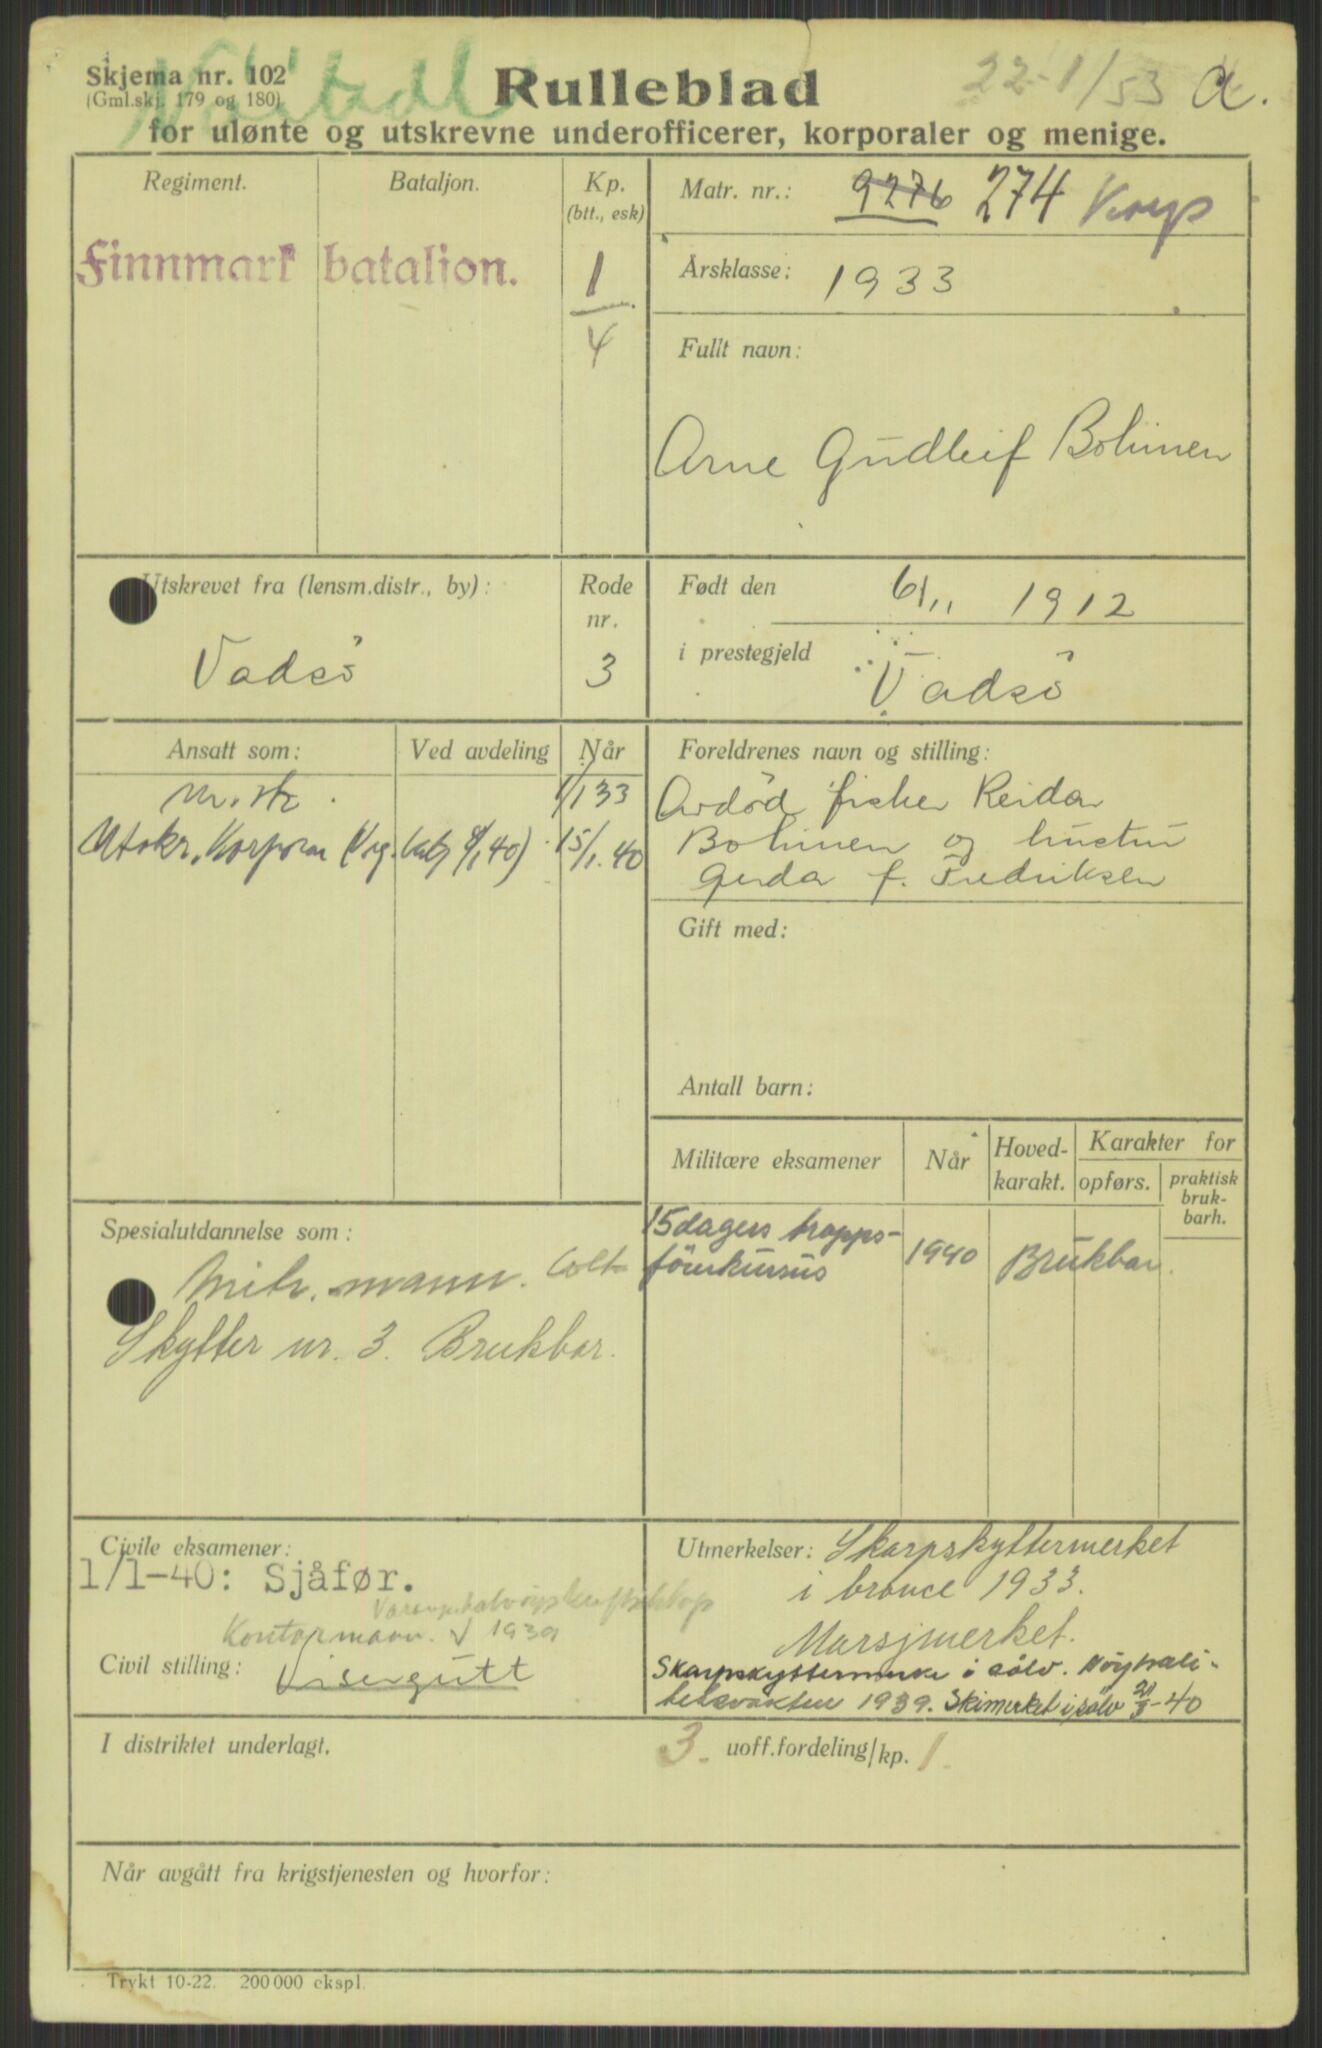 Skjema nr. 102
(Gml.skj. 179 og 180)
Rulleblad
22-1/53 a.
for ulønte og utskrevne underofficerer, korporaler og menige.
Regiment.
Bataljon.
Kp.
(btt., esk)
Finnmark bataljon.
1
4
Matr. nr.: 9276 274 Korp
Årsklasse: 1933
Fullt navn:
Arne Gudleif Bohinen
Utskrevet fra (lensm.distr., by):
Vadsö
Rode
nr.
3
Født den 6/11 1912
i prestegjeld Vadsö
Ansatt som:
Ved avdeling
Når
1/1 33
Utskr. Korporal 15/1. 40
Foreldrenes navn og stilling:
Avdöd fisker Reidar
Bohinen og hustru
Gerda f. Fredriksen
Gift med:
Antall barn:
Militære eksamener
Når
Hoved-
karakt.
Karakter for
opførs.
praktisk
bruk-
barh.
15 dagers tropps-
förerkursus
1940
Brukbar.
Spesialutdannelse som:
Mitr. mann. Colt
Skytter nr. 3. Brukbar.
Civile eksamener:
1/1-40: Sjåfør.
Kontormann. 1939
Civil stilling: Visergutt
Utmerkelser: Skarpskyttermerket
i bronce 1933.
Marsjmerket.
Skarpskyttermerke i sölv. Nöytrali-
tetsvakten 1939. Skimerket i sölv 20/3-40
I distriktet underlagt.
3. uoff.fordeling/kp. 1.
Når avgått fra krigstjenesten og hvorfor:
Trykt 10-22. 200 000 ekspl.